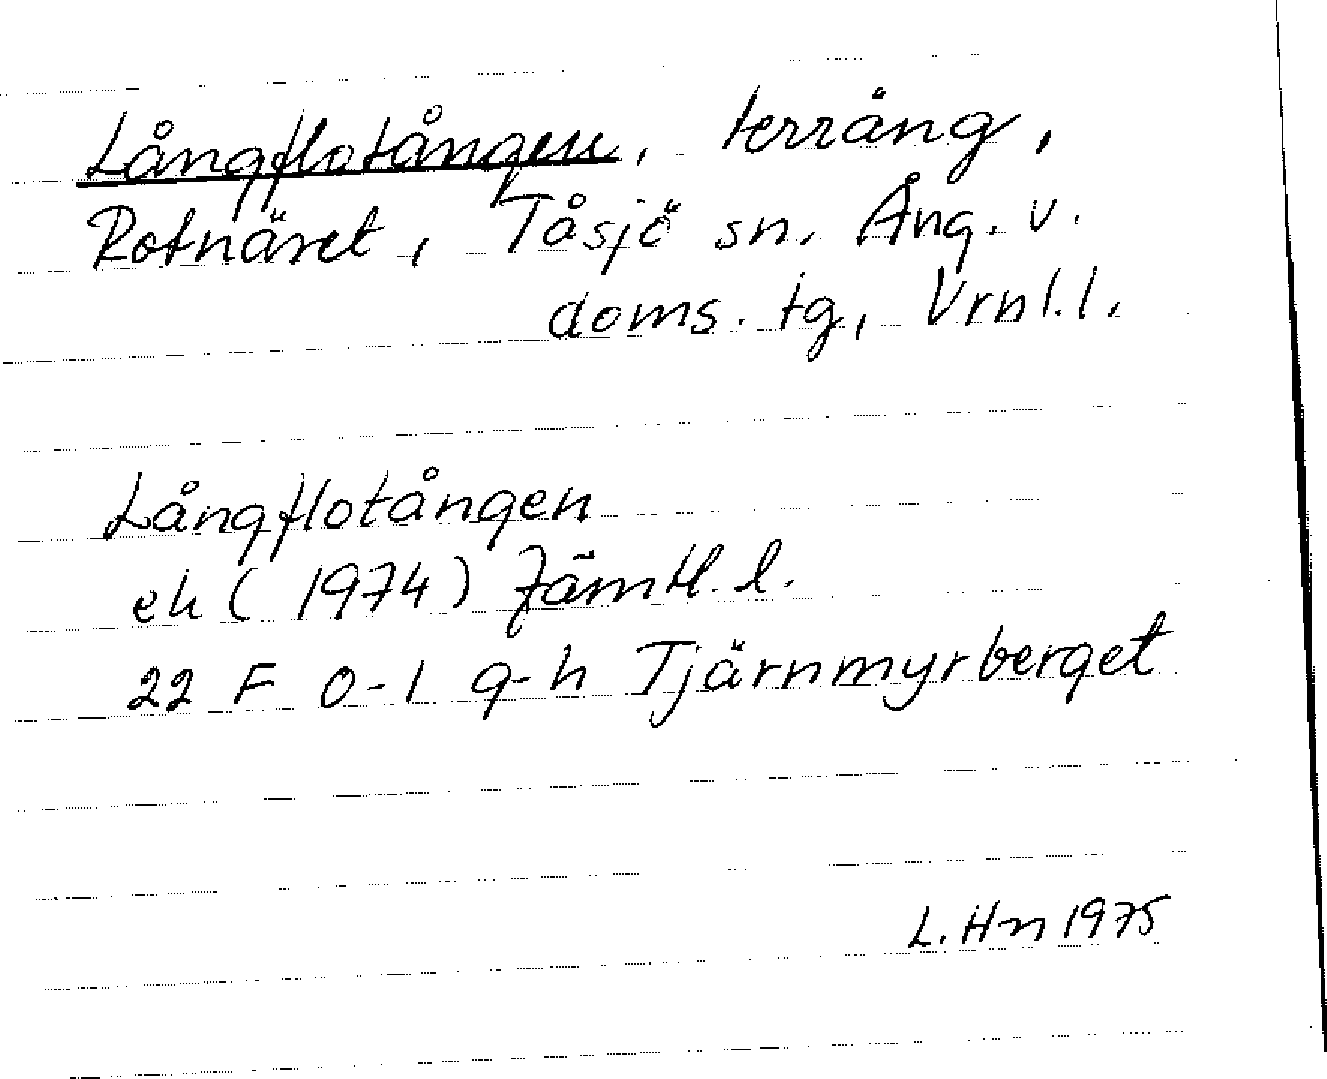 Långflotången, terräng,
Rotnäset, Tåsjö sn. Ång. v.
doms. tg, Vrnl. l.
Långflotången
ek ( 1974 ) Jämtl. l.
22 F 0-1 g-h Tjärnmyrberget
L. Hn 1975